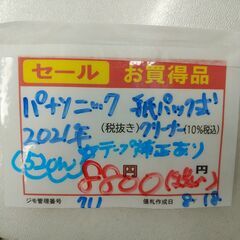 セール お買得品
パナソニック 紙パック式
2021年 (税抜き) クリーナー (10%税込)
テープ補正あり
円 8800円
ジモ管理番号 711 値札作成日 8-18